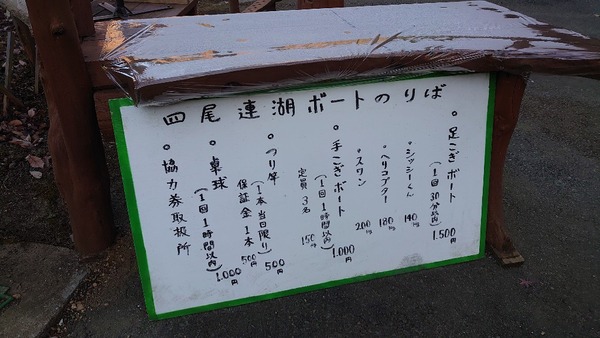 四尾連湖ボートのりば
◦足こぎボート
(1回30分以内)
1.500
シッシーくん 140kg
ヘリコプター 180kg
スワン 200kg
◦手こぎボート
(1回1時間以内)
1.000
定員3名 150kg
◦つり竿
(1本当日限り)
500円
保証金1本 500円
◦卓球
(1回1時間以内)
1.000円
◦協力券取扱所